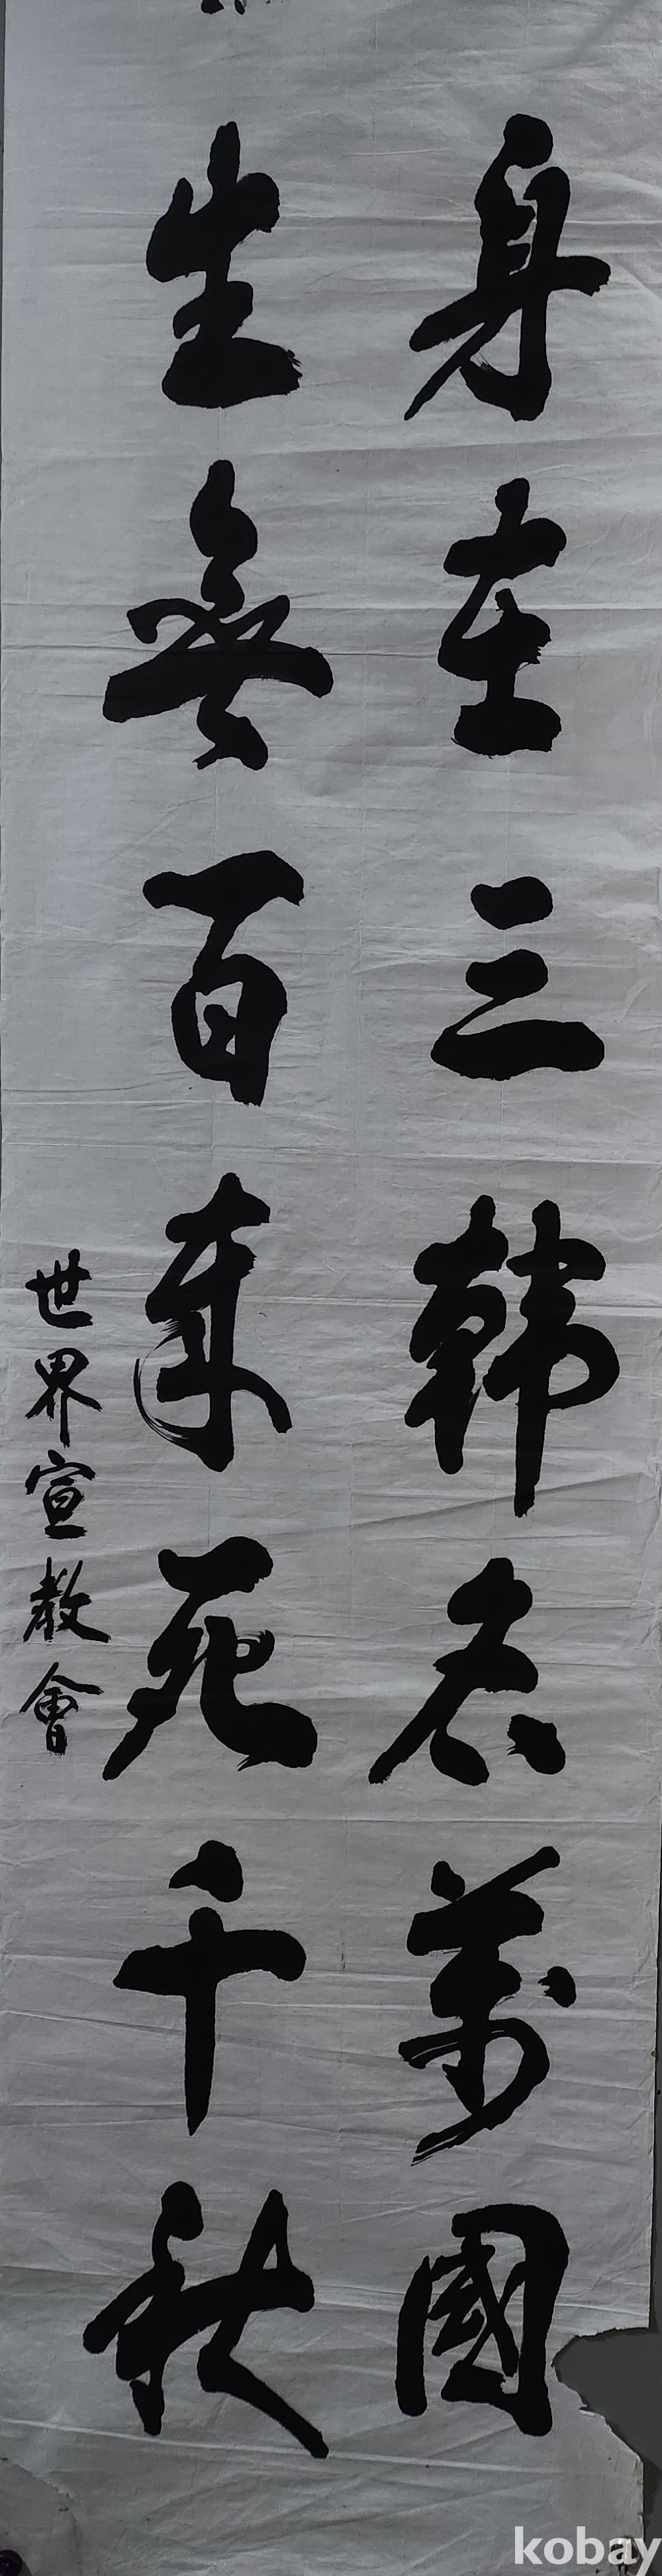 身在三韓名萬國
生無百年死千秋
世界宣教會
kobay